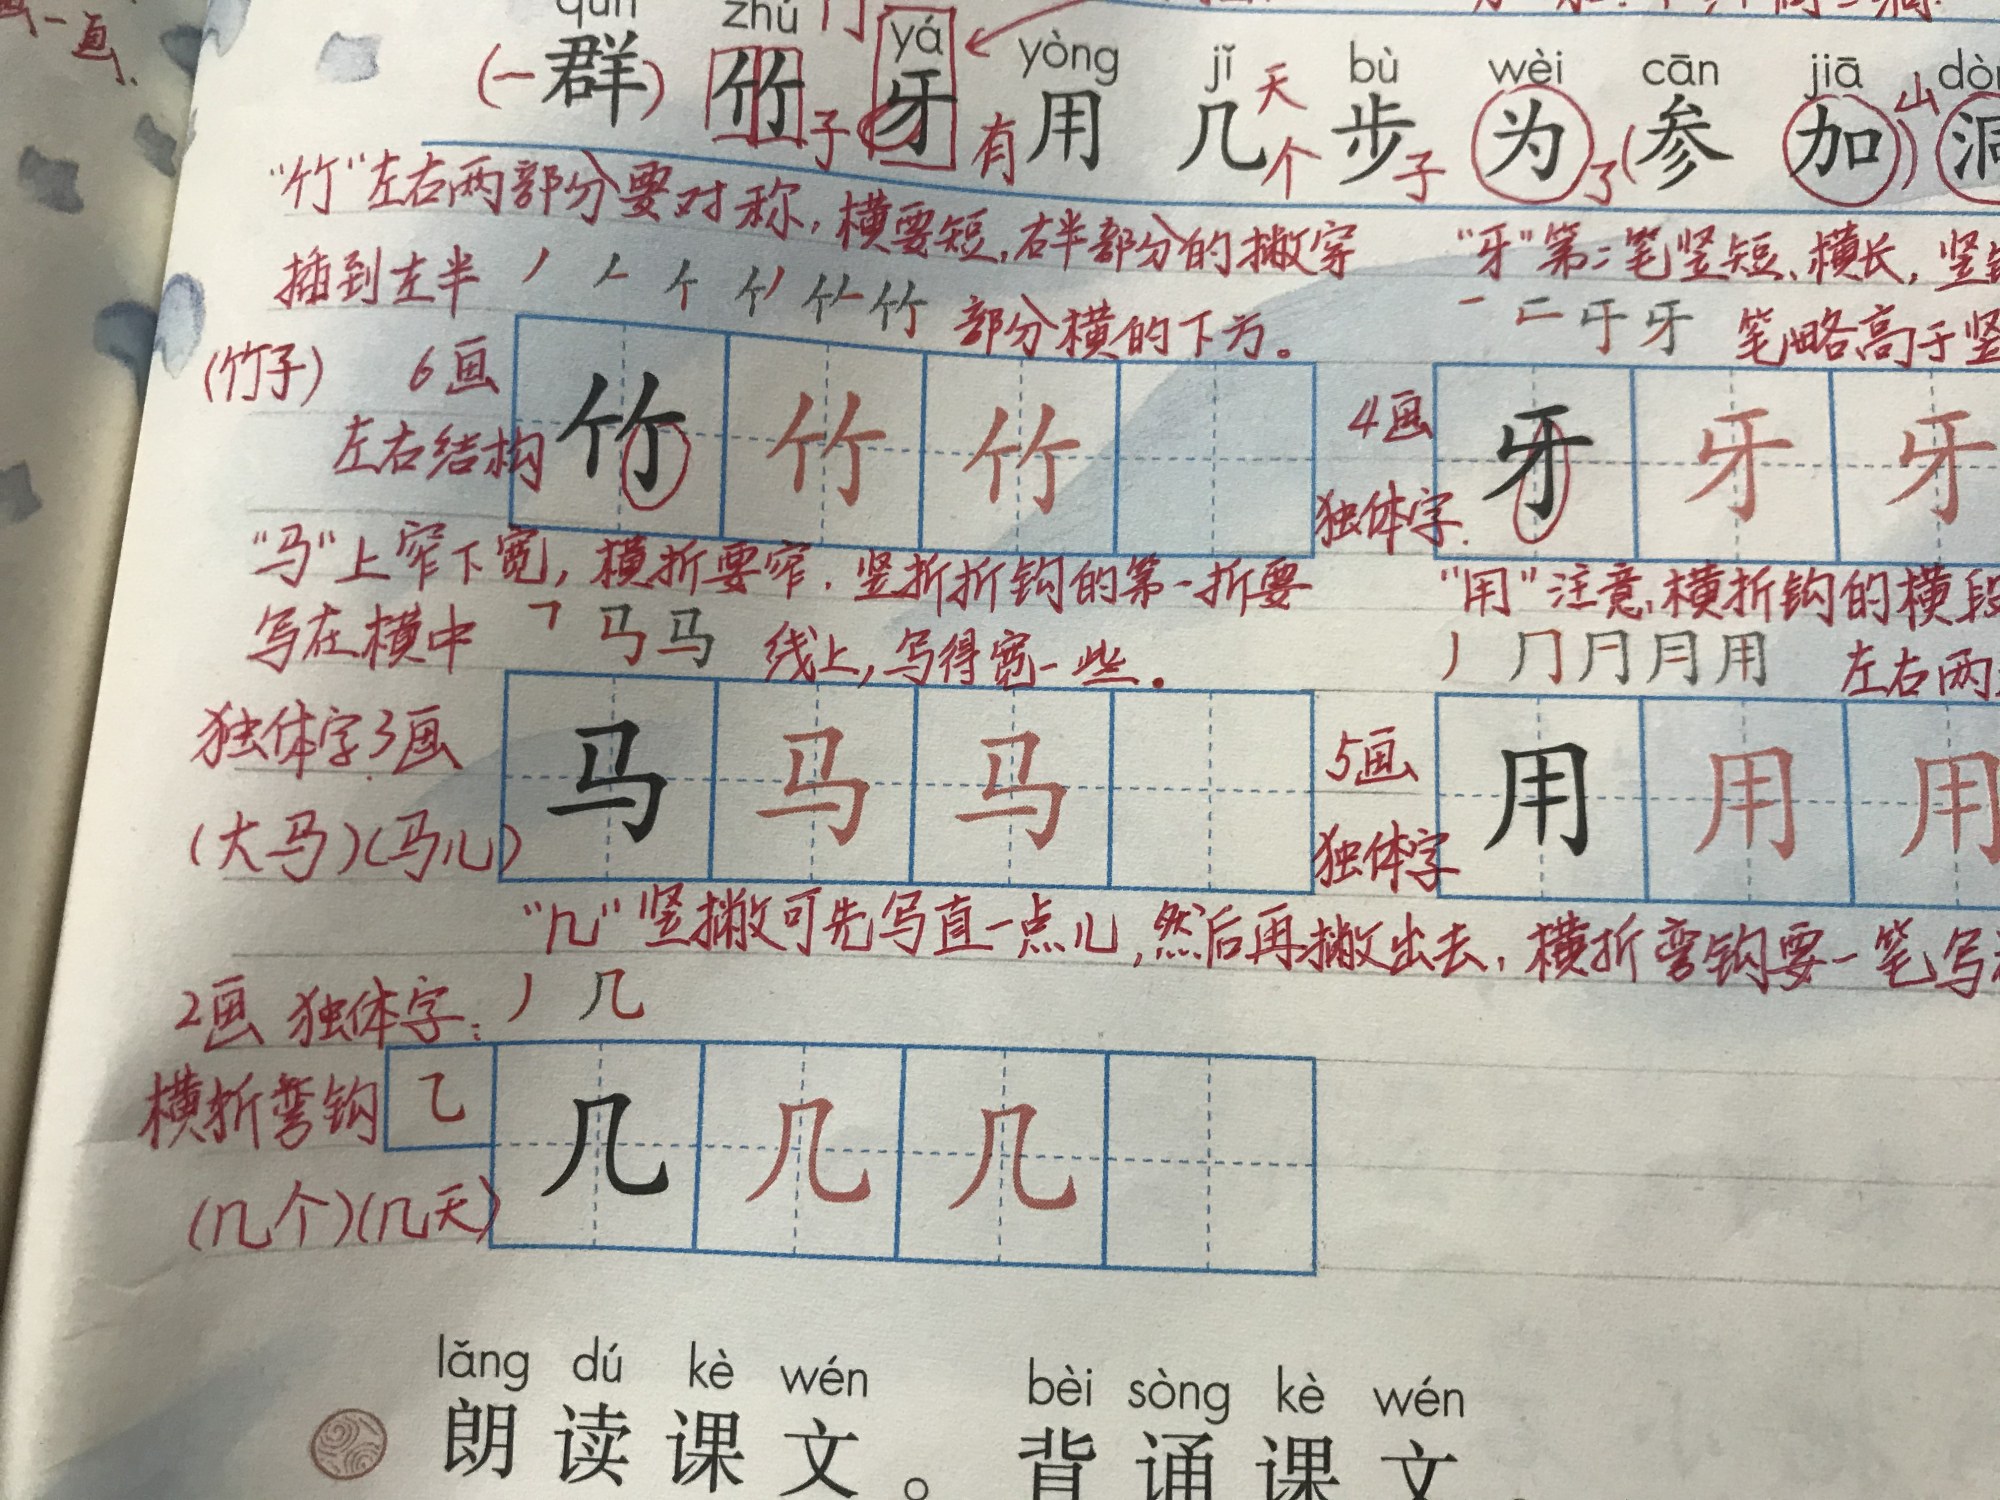 一画.
zhú yá yòng jǐ bù wèi cān jiā
(一群) 竹子 牙 有用 几天 个 步子 为了 (参加) 山洞
"竹"左右两部分要对称,横要短,右半部分的撇穿
插到左半 部分横的下方。
(竹子) 6画
左右结构
竹 竹 竹
"牙"第二笔竖短、横长,竖
笔略高于竖
4画
独体字.
牙 牙 牙
"马"上窄下宽,横折要窄.竖折折钩的第一折要
写在横中 线上,写得宽一些。
独体字3画
(大马)(马儿)
马 马 马
"用"注意,横折钩的横段
左右两
5画
独体字
用 用 用
"几"竖撇可先写直一点儿,然后再撇出去,横折弯钩要一笔写
2画 独体字:丿 几
横折弯钩 ㇈
(几个)(几天)
几 几 几
lǎng dú kè wén bèi sòng kè wén
朗读课文。背诵课文